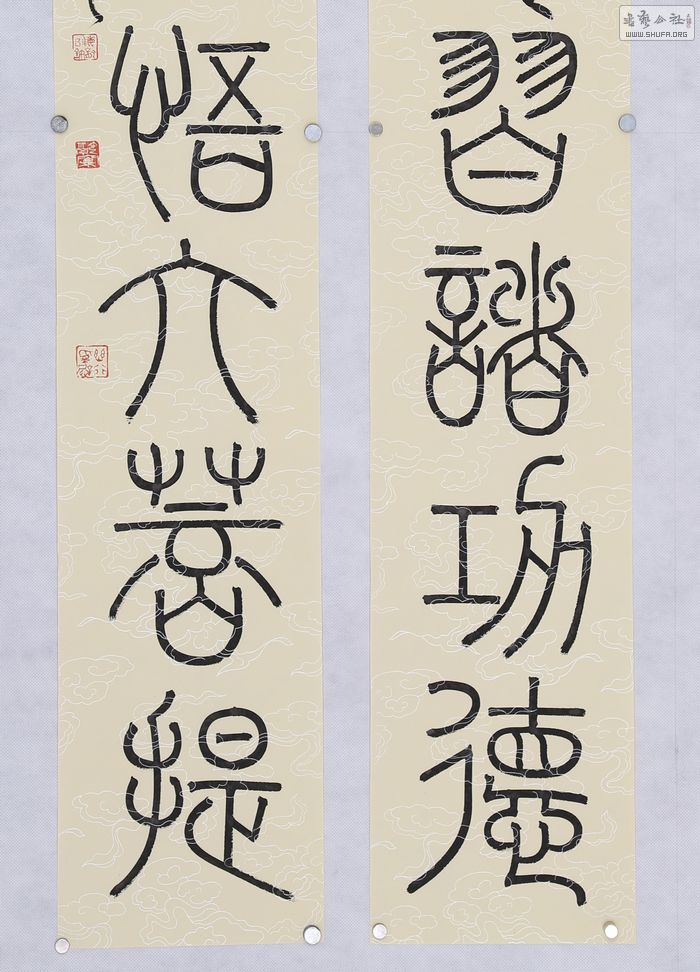 習諸功德
悟大菩提
書藝公社
WWW.SHUFA.ORG